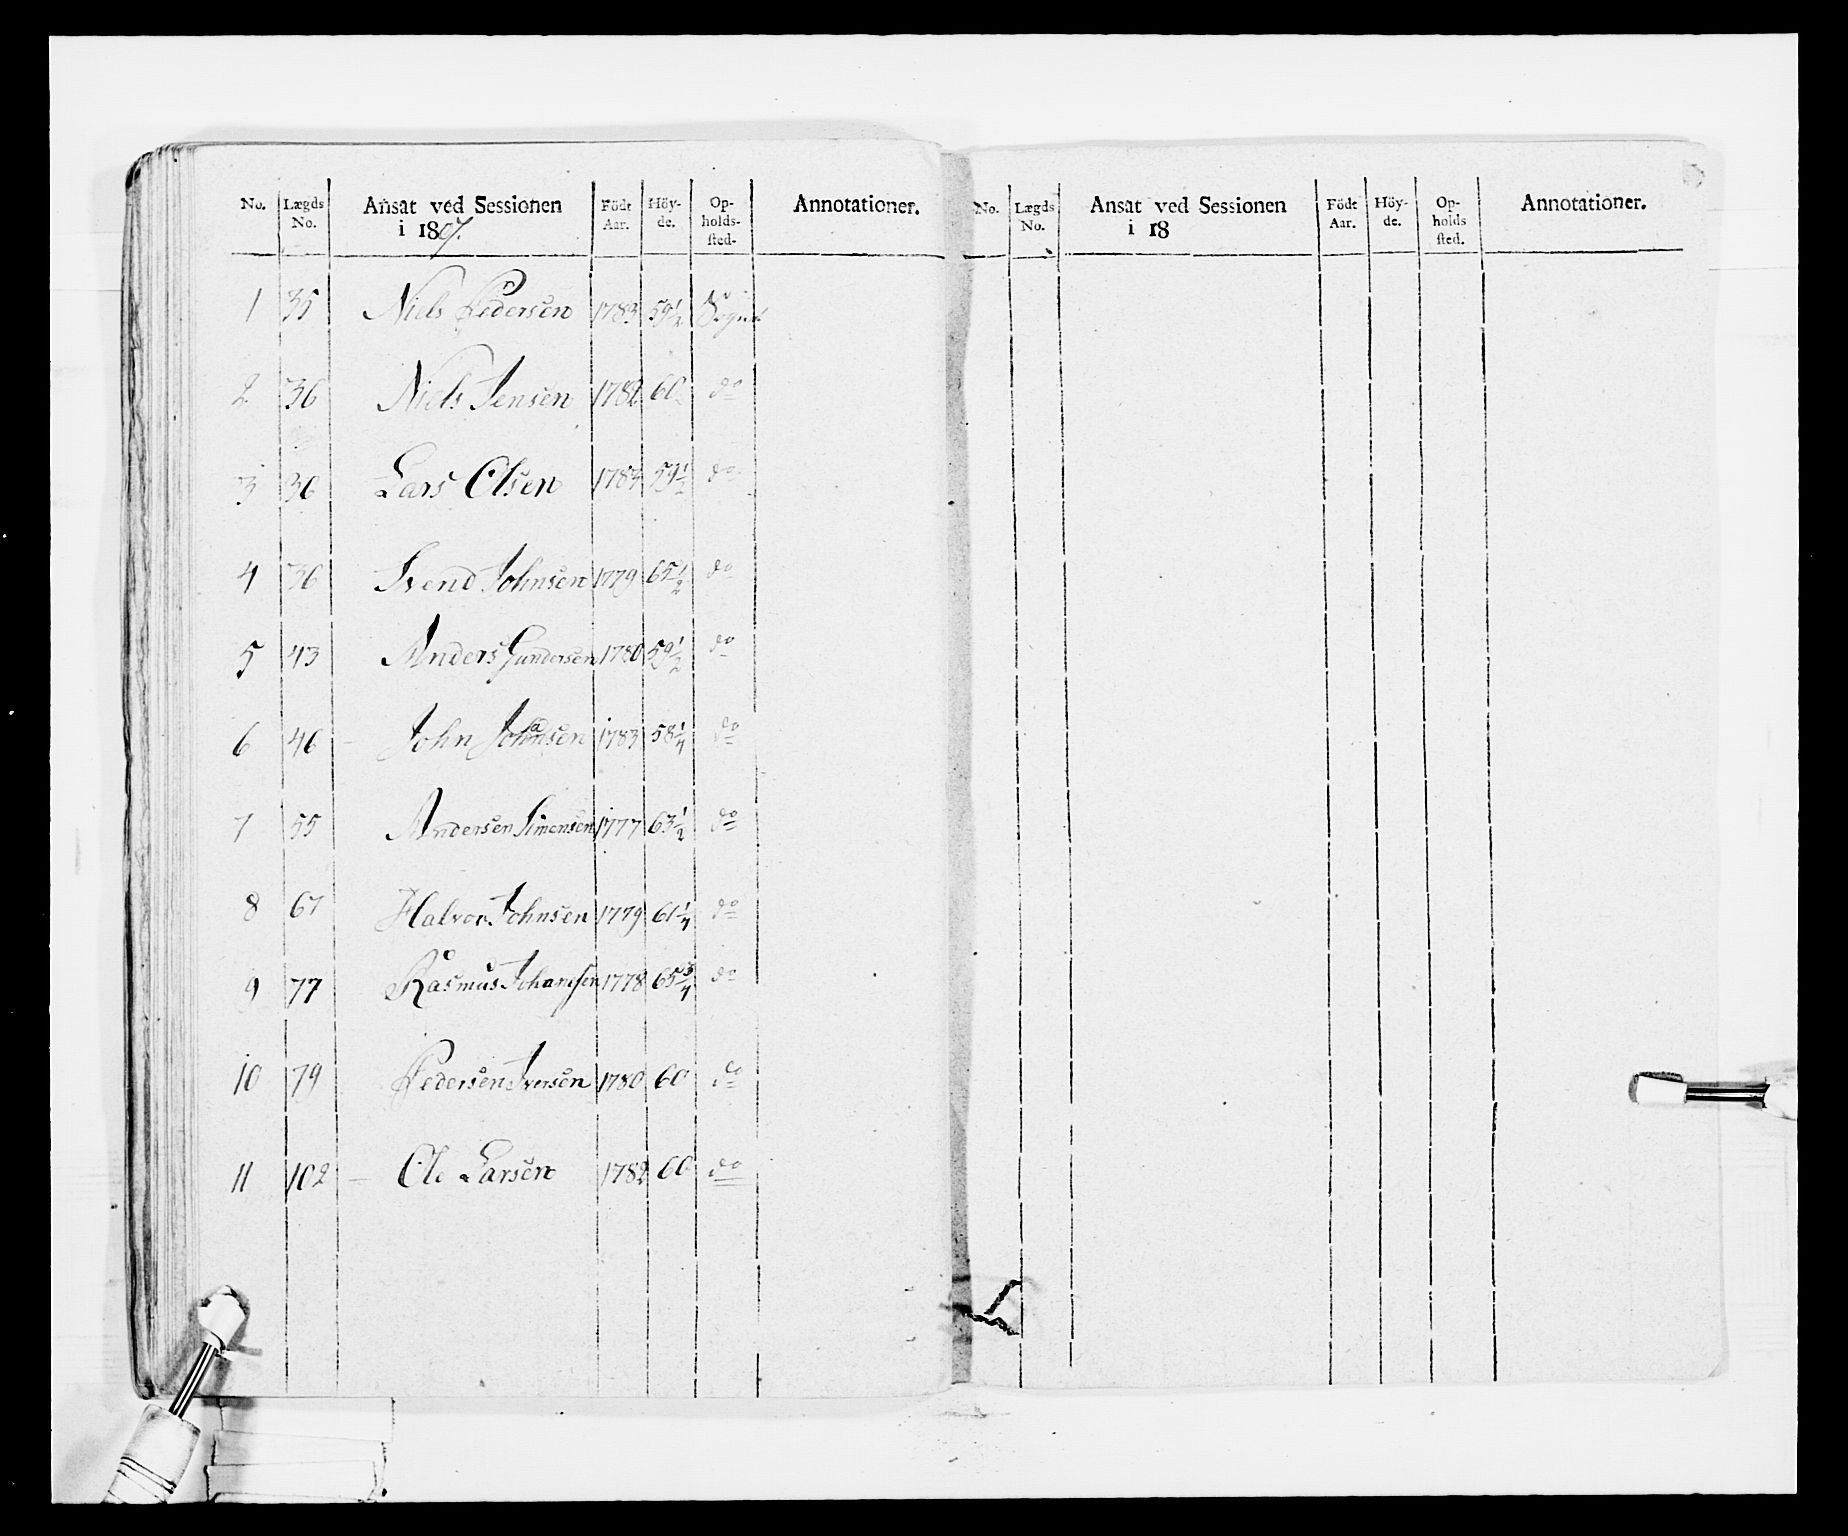 No. Lægds No. Ansat ved Sessionen i 1807. Födt Aar. Höy-de. Op-holds-sted. Annotationer.
1 35 Niels Pedersen 1783 59 1/2 Sogned
2 36 Niels Jensen 1782 60 do
3 36 Lars Olsen 1783 59 1/2 do
4 36 Svend Johnsen 1779 65 1/2 do
5 43 Anders Gundersen 1780 59 1/2 do
6 46 – John Johansen 1783 58 1/4 do
7 55 Andersen Simensen 1777 63 1/2 do
8 67 Halvor Johnsen 1779 61 1/4 do
9 77 Rasmus Johansen 1778 65 3/4 do
10 79 Pedersen Iversen 1780 60 do
11 102 – Ole Larsen 1782 60 do
No. Lægds No. Ansat ved Sessionen i 18 Födt Aar. Höy-de. Op-holds sted. Annotationer.